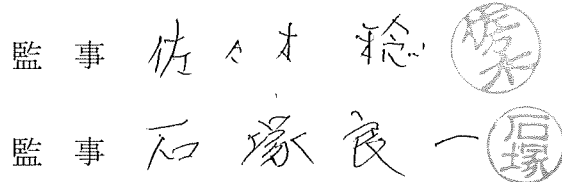 監事 佐々木 稔 佐々木
監事 石塚良一 石塚